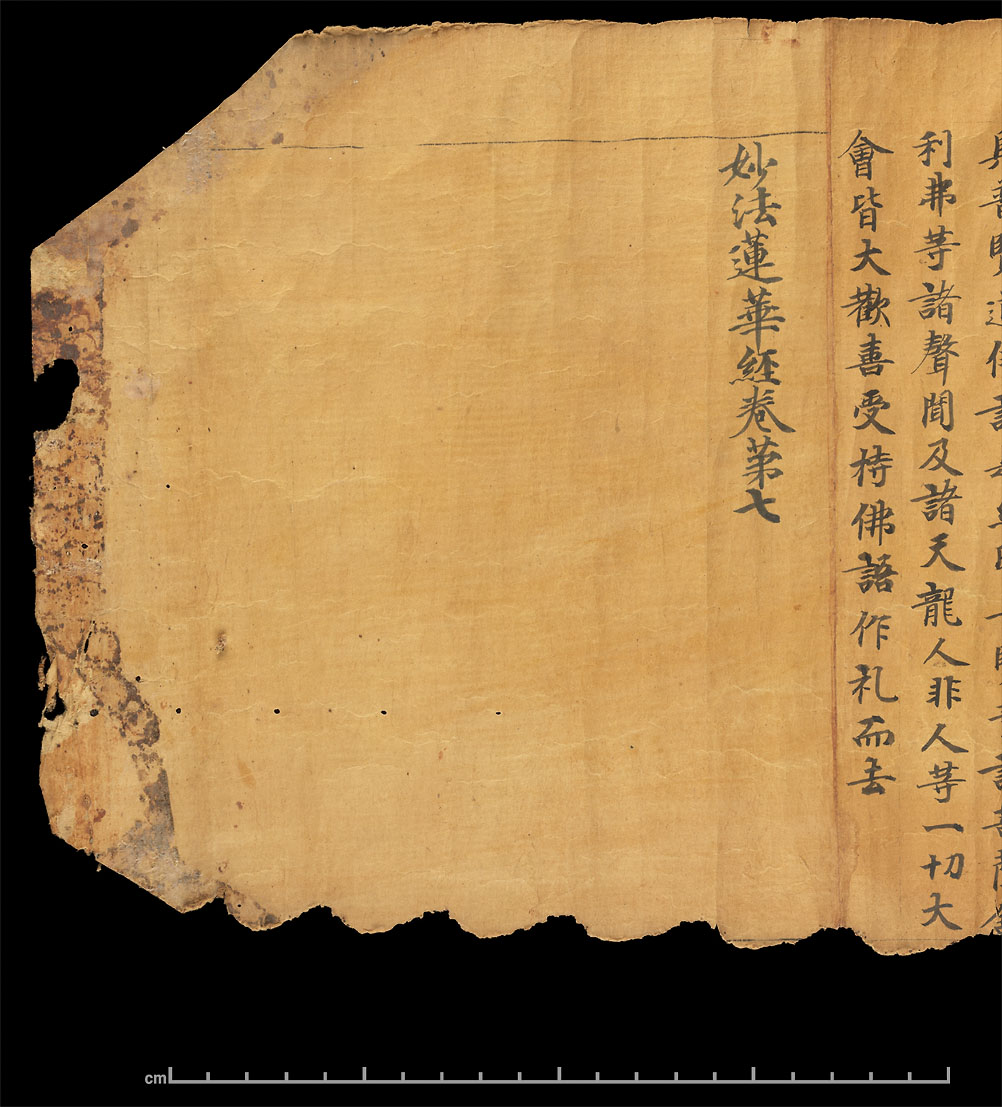 利弗等諸聲聞及諸天龍人非人等一切大
會皆大歡喜受持佛語作礼而去
妙法蓮華經卷第七
cm